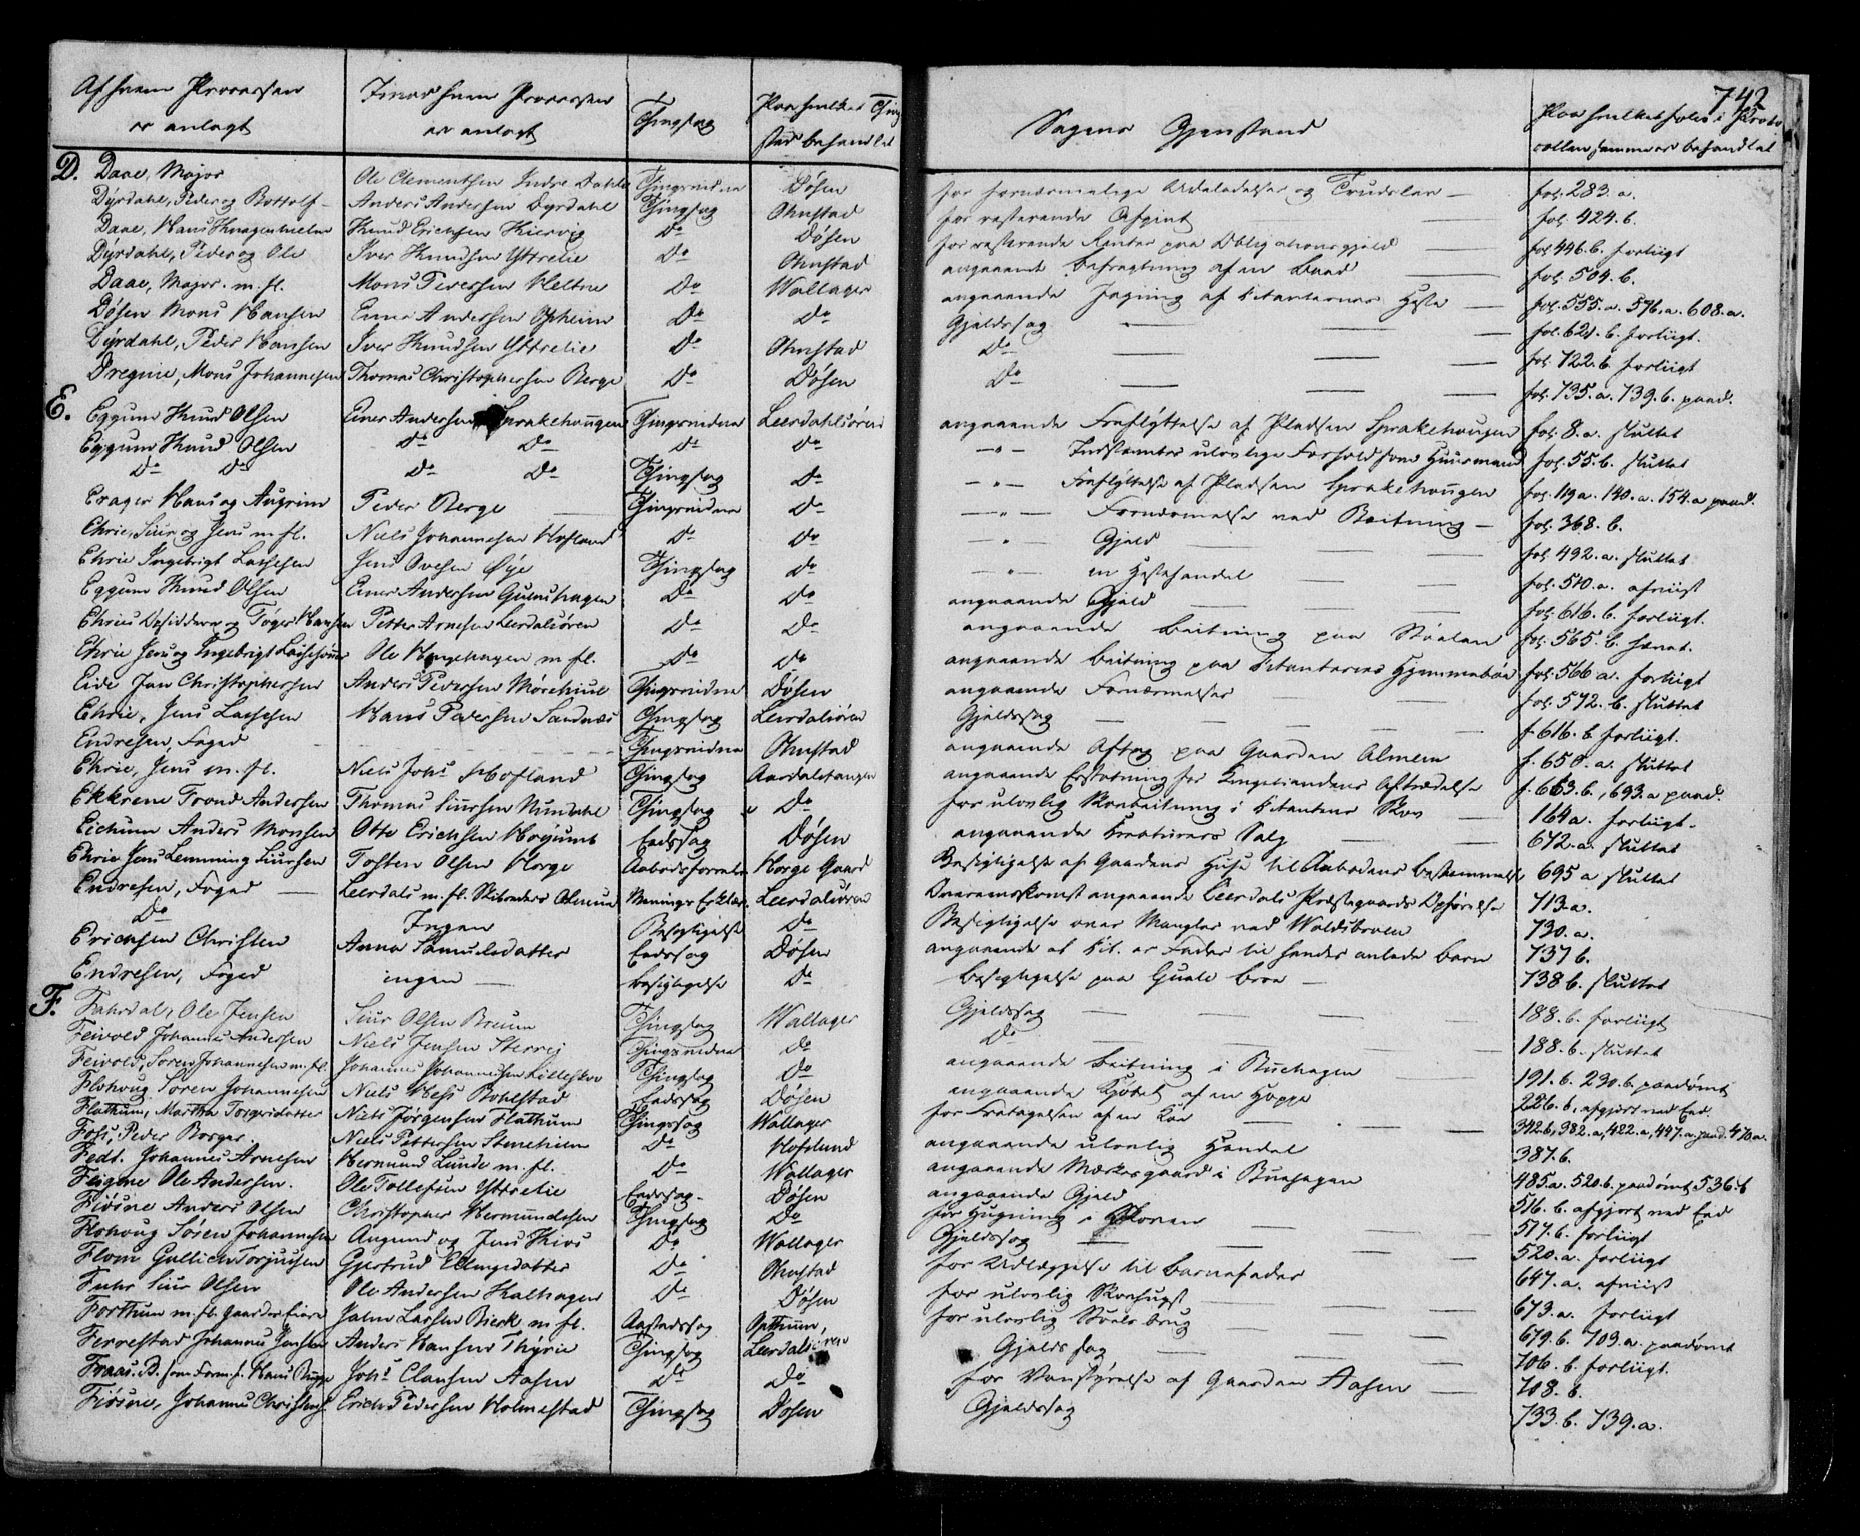 742
Af hvem Processen er anlagt | Imod hvem Processen er anlagt | Thingsag | Paa hvilket Thingsted behandlet | Sagens Gjenstand | Paa hvilket folio i Protocollen samme er behandlet
D. Daae, Major | Ole Clementsen Indre Dahle | Thingsvidne | Døsen | for fornærmelige Udeladelser og Trudsler | fol. 283. a.
Dyrdahl, Peder og Bottolf | Anders Andersen Dyrdahl | Thingsag | Ohnstad | for resterende Afgivt | fol. 424. b.
Daae, Hans Knagenhielm | Knud Erichsen Kiervig | Do | Døsen | for resterende Renter paa Obligationsgjæld | fol. 446. b. forliigt
Dyrdahl, Peder og Ole | Iver Knudsen Yttrelie | Do | Ohnstad | angaaende Befragtning af en Baad | fol. 504. b.
Daae, Major m. fl. | Mons Pedersen Heltne | Do | Wallager | angaaende Jagning af Citanternes Heste | fol. 555. a. 576. a. 608. a.
Døsen Mons Hansen | Einer Andersen Opheim | Do | Do | Gjeldssag | fol. 621. b. forliigt.
Dyrdahl, Peder Hansen | Iver Knudsen Yttrelie | Do | Ohnstad | Do | fol. 722. b. forliigt
Dregnie, Mons Johannesen | Thomas Christophersen Berge | Do | Døsen | Do | fol. 735. a. 739. b. paad.
E. Eggum Knud Olsen | Einer Andersen Sprakehougen | Thingsvidne | Leerdahlsøren | angaaende Fraflyttelse af Pladsen Sprakehougen | fol. 8. a. sluttet
Eggum Knud Olsen | Do Do | Do | Do | -"- Indstevntes ulovlige Forhold som Huusmand | fol. 55. b. sluttet
Do Do | Do Do | Thingsag | Do | -"- Fraflyttelse af Pladsen Sprakehougen | fol. 119 a. 140. a. 154. a paad.
Erager Hans og Augrim | Peder Berge | Thingsvidne | Do | -"- Fornærmelse ved Beitning | fol. 368. b.
Ehrie, Siur og Jens m. fl. | Niels Johannesen Hofland | Do | Do | -"- Gjeld | fol. 492. a. sluttet
Ehrie Ingebrigt Lassesen | Jens Ovesen Øye | Thingsag | Do | -"- en Hestehandel | fol. 510. a. afviist
Eggum Knud Olsen | Einer Andersen Guulhagen | Do | Do | angaaende Gjeld | fol. 616. b. forliigt.
Ehries Opsiddere og Tøger Hansen | Petter Arnesen Leerdalsøren | Do | Do | angaaende Beitning paa Stølen | fol. 565. b. hævet.
Ehrie Jens og Ingebrigt Lassesønner | Ole Hougehagen m fl. | Do | Do | angaaende Beitning paa Citanternes Hjemmebøe | fol. 566 a. forliigt
Eide Jan Christophersen | Anders Pedersen Mørchiul | Thingsvidne | Døsen | angaaende Fornærmelser | fol. 572. b. sluttet
Ehrie, Jens Lassesen | Hans Pedersen Sandnæs | Thingsag | Leerdalsøren | Gjeldssag | f. 616. b forliigt.
Endresen, Foged | | Thingsvidne | Ohnstad | angaaende Aftag paa Gaarden Almen | f. 650. a. sluttet
Ehrie, Jens m. fl. | Niels Johs Hofland | Thingsag | Aardalstangen | angaaende Erstatning for Engelandenes Aftrædelse | f. 663. b., 693. a paad.
Ekkrene Trond Andersen | Thomas Siursen Nundahl | Thingsag | Do | for ulovlig Skovbeitning i Citantens Skov | 164 a. forliigt.
Eichum Anders Monsen | Otto Erichsen Hogumb | Eedssag | Døsen | angaaende Creaturers Salg | 672. a. sluttet
Ehrie Jens Lemming Siursen | Tosten Olsen Horge | Aabodsforretn. | Horge Gaard | Besigtigelse af Gaardens Huse til Aabodens Bestemmelse | 695 a sluttet
Endresen, Foged | Leerdals m. fl. Skibreders Almue | Menings Erklær. | Leerdalsøren | angaaende Leerdals Præstegaards Opførelse | 713. a.
Do | Ingen | Besigtigelse | Do | Besigtigelse over Mangler ved Woldsbroen | 730. a.
Erichsen Christen | Anna Samuelsdatter | Eedssag | Døsen | angaaende at Cit. er Fader til hendes avlede Barn | 737 b.
Endresen, Foged | ingen | besigtigelse | Do | besigtigelse paa Guale broe | 738 b. sluttet
F. Fahrdal, Ole Jensen | Siur Olsen Bruum | Thingsag | Wallager | Gjeldssag | 188. b. forliigt
Feivold Johannes Andersen | Niels Jensen Sterrej | Thingsvidne | Do | Do | 188. b. sluttet
Feivold, Søren Johannesen m. fl. | Johannes Johannesen Lilleskou | Thingsag | Do | angaaende Beitning i Buehagen | 191. b. 230. b. paadømt
Flohoug Søren Johannesen | Niels Hess Bohlstad | Eedssag | Døsen | angaaende Kjøbet af en Hoppe | 226. b., afgjort ved Eed.
Flathum, Martha Torgersdatter | Niels Jørgensen Flathum | Thingsag | Wallager | for Fratagelsen af en Koe | 342 b, 382. a, 422. a, 447. a. paad. 470 a.
Foss, Peder Borger | Niels Pettersen Stenehiem | Do | Hofslund | angaaende ulovlig Handel | 387. b.
Fedt. Johannes Arnesen | Hermund Lunde m. fl. | Do | Wallager | angaaende Merkesgaard i Buehagen | 485. a. 520. b. paadømt 536. b
Feigne Ole Andersen. | Ole Tollefsen Yttrelie | Eedssag. | Døsen | angaaende Gjeld | 516. b. afgjort ved Eed
Fiøsne Anders Olsen | Christopher Hermundsen | Thingsag | Do | for Hugning i Skoven | 517. b. forliigt
Flohoug Søren Johannesen | Augund og Jens Kios | Do | Wallager | Gjeldssag | 520. a. forliigt
Flom Gullich Torjusen | Gjertrud Ellingsdatter | Do | Ohnstad | for Udlæggelse til Barnefader | 647. a. afviist
Fuhr Siur Olsen | Ole Andersen Kalhagen | Do | Døsen | for ulovlig Skovhugst | 673. a. forliigt
Forthun m. fl. Gaardes Eiere | John Lassen Bierk m fl. | Aastedssag | Opthun, | for ulovlig Stølsbrug | 679. b. 703. a. paadømt
Ferrestad Johannes Jensen | Anders Hansen Thyrie | Thingsag | Leerdalsøren | Gjeldssag | 706. b. forliigt.
Fraas. D. som Form. f. Hans Rugge | Johs Clausen Aasen | Do | Do | for Vanstyrelse af Gaarden Aasen | 708. b.
Fiøsne, Johannes Christens. | Erich Pedersen Holmestad | Thingsag | Døsen | Gjeldssag | 733. b. 739. a.